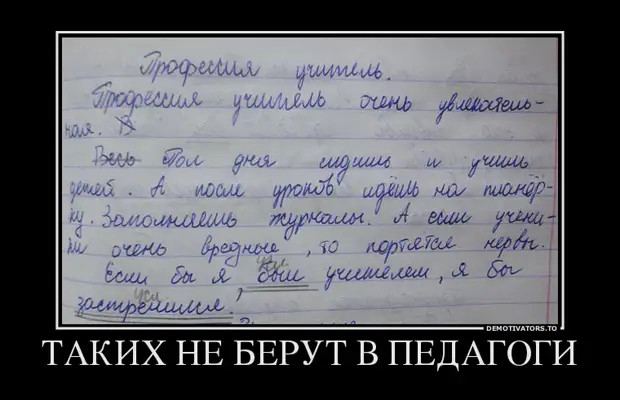 Профессия учитель.
Профессия учитель очень увлекатель-
ная. В
Весь Пол дня сидишь и учишь
детей. А после уроков идёшь на планёр-
ку. Заполняешь журналы. А если учени-
ки очень вредные, то портятся нервы.
Если бы я, был учителем, я бы
застрелился.
DEMOTIVATORS.TO
ТАКИХ НЕ БЕРУТ В ПЕДАГОГИ